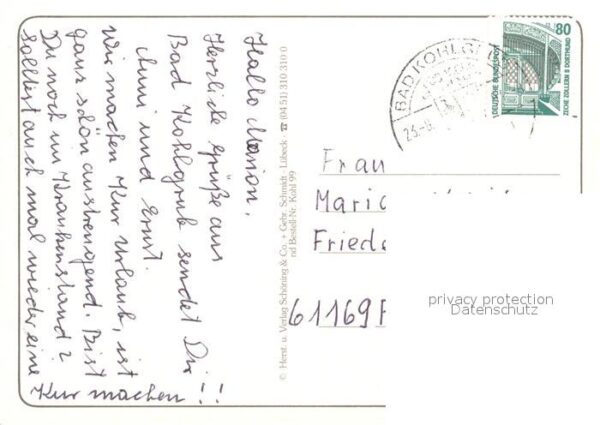 Hallo Marion,
Herzliche Grüße aus
Bad Kohlgrub sendet Dir
Anni und Ernst.
Wir machen Kur Urlaub, ist
ganz schön anstrengend. Bist
Du noch im Krankenstand?
solltest auch mal wieder eine
Kur machen!!
© Herst. u. Verlag Schöning & Co. + Gebr. Schmidt · Lübeck · ☎ (04 51) 310 310 0
nd Bestell-Nr. Kohl 99
BAD KOHLG
23.-8.
80
DEUTSCHE BUNDESPOST
ZECHE ZOLLERN II DORTMUND
Frau
Mario
Friede
61169 F
privacy protection
Datenschutz